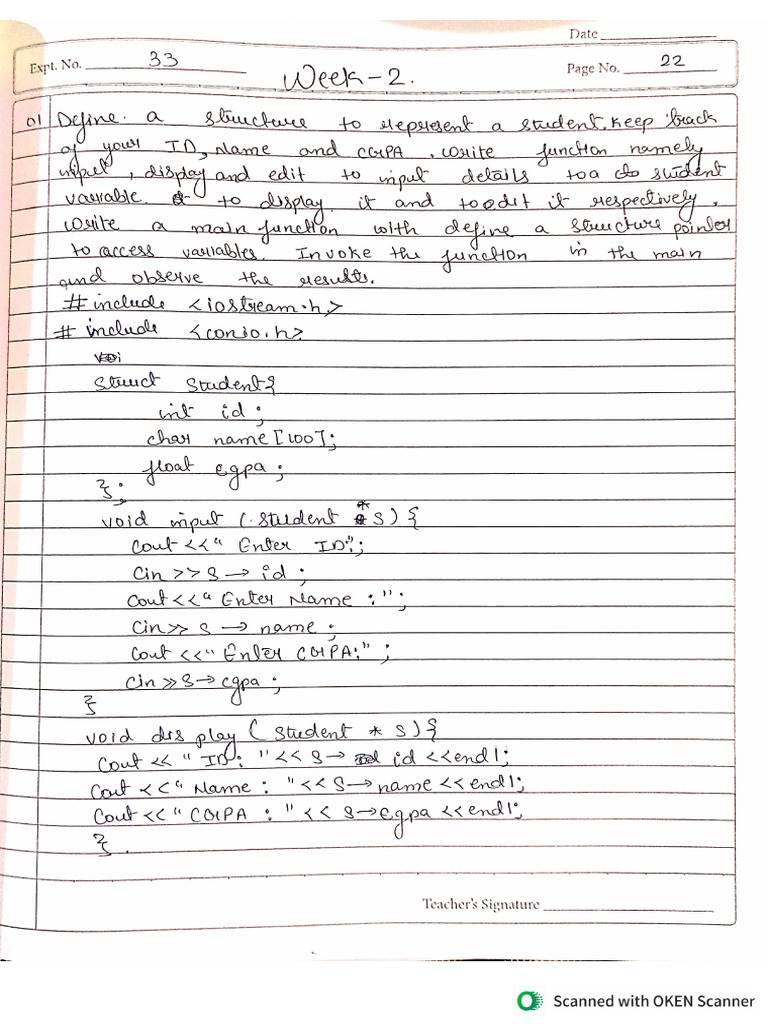 Date
Expt. No. 33
Week-2.
Page No. 22
01 Define a structure to represent a student. Keep track
of your ID, Name and CGPA. Write function namely
input, display and edit to input details to a student
variable to display it and to edit it respectively.
Write a main function with define a structure pointer
to access variables. Invoke the function in the main
and observe the results.
#include <iostream.h>
#include <conio.h>
struct student{
int id;
char name[100];
float cgpa;
};
void input (student *s){
cout<<"Enter ID:";
cin>>s→id;
cout<<"Enter Name :";
cin>>s→name;
cout<<"Enter CGPA:";
cin>>s→cgpa;
}
void display(student *s){
cout<<"ID: "<<s→id<<endl;
cout<<"Name: "<<s→name<<endl;
cout<<"CGPA: "<<s→cgpa<<endl;
}.
Teacher's Signature
Scanned with OKEN Scanner